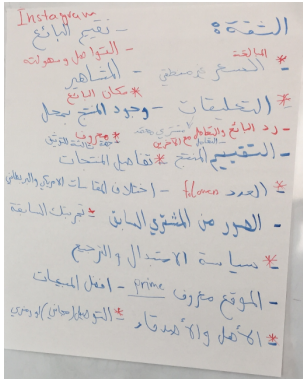 Instagram
الثقة:
- تقييم البائع
- التواصل وسهولته
المبالغة
* - السعر غير منطقي - المشاهير
* مكان البائع
* التعليقات - وجود المنتج بمحل
- رد البائع والتعامل مع الآخرين
* معروف
- التقييم المنتج * تفاصيل المنتجات
* العدد followers - اختلاف المقاسات الامريكي والبريطاني
- الصور من المشتري السابق * تجربتك السابقة
* سياسة الاستبدال والترجيع
- الموقع معروف prime - افضل المبيعات
* الأهل والأصدقاء * التوصيل (مجاني) او رمزي